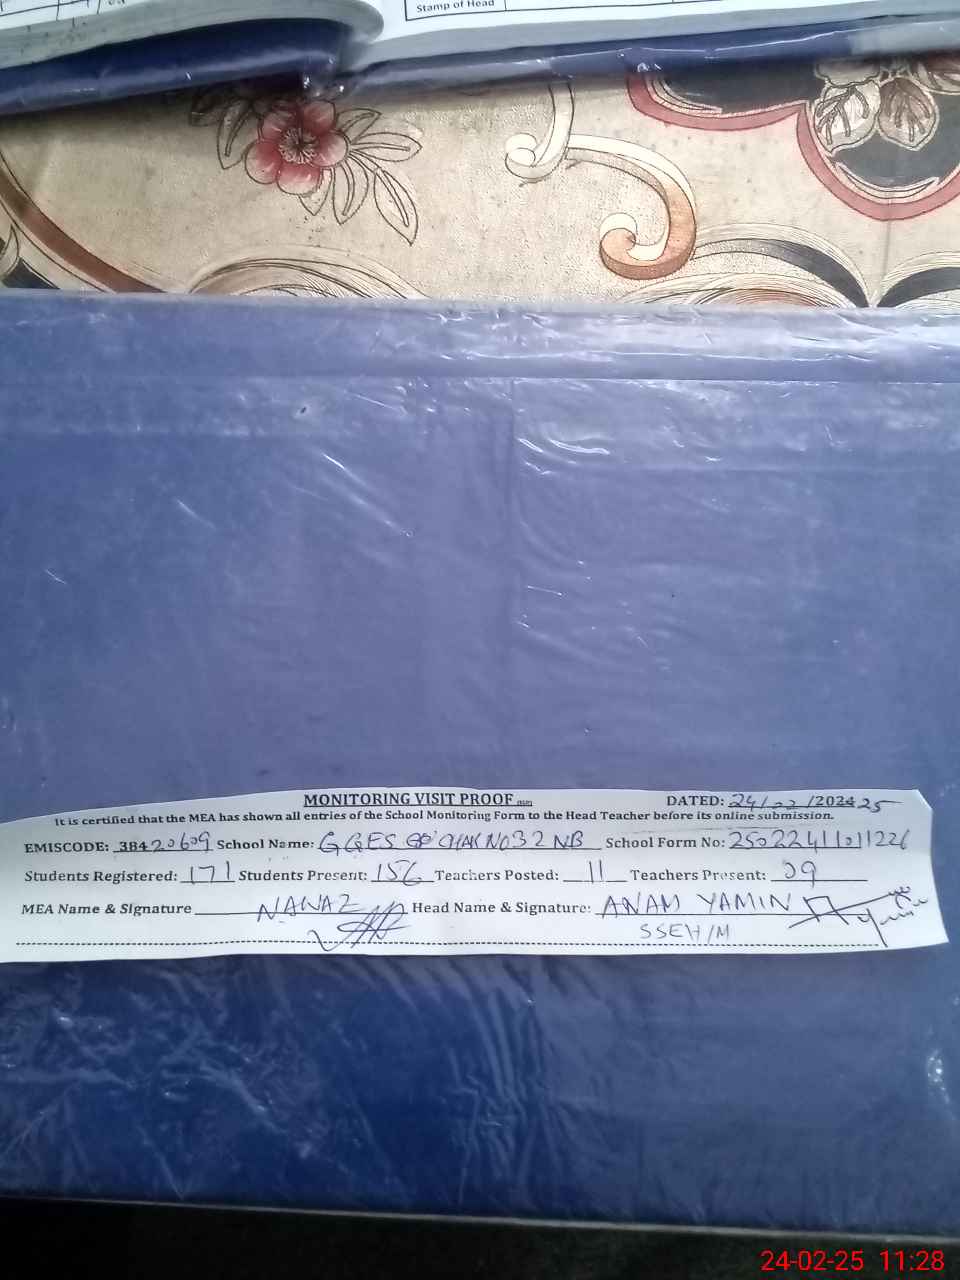 Stamp of Head
MONITORING VISIT PROOF
DATED: 24/02/2024 25
It is certified that the MEA has shown all entries of the School Monitoring Form to the Head Teacher before its online submission.
EMISCODE: 38420609 School Name: GGES CHAK NO 32 NB School Form No: 25022411011226
Students Registered: 171 Students Present: 156 Teachers Posted: 11 Teachers Present: 09
MEA Name & Signature NAWAZ Head Name & Signature: ANAM YAMIN
SSEH/M
24-02-25 11:28